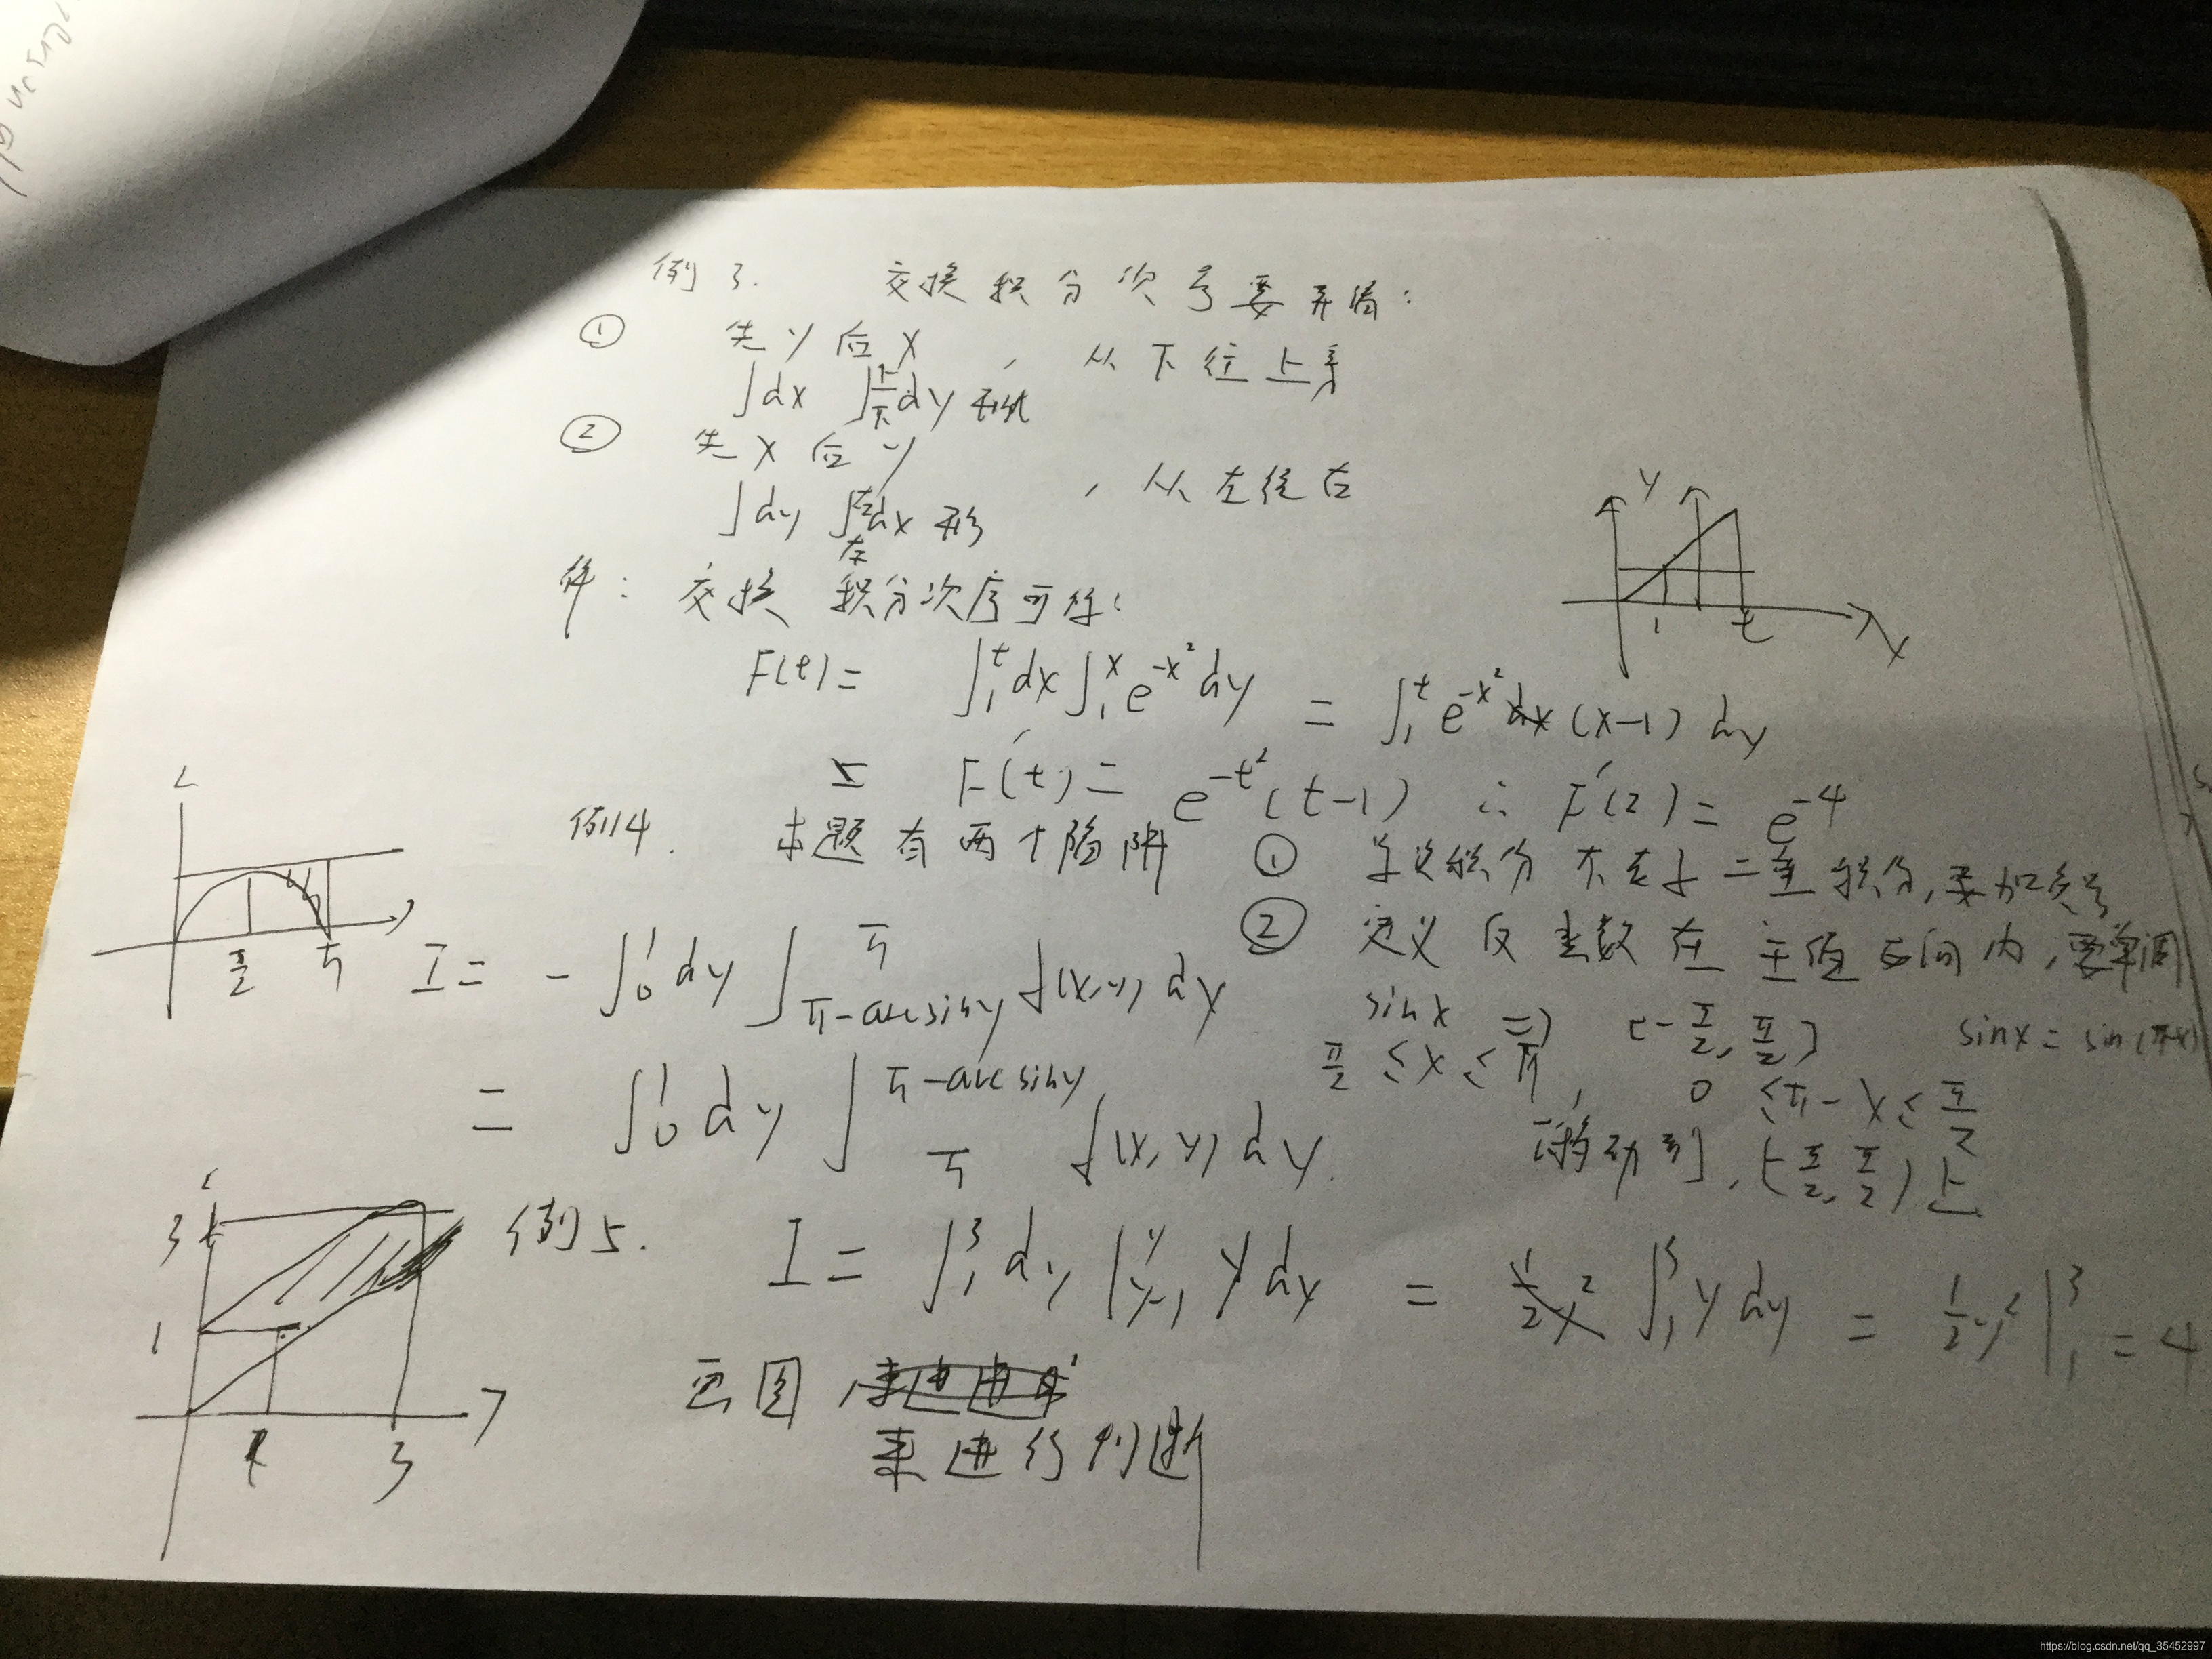 例3. 交换积分次号要弄清:
① 先y后x , 从下往上穿
∫dx ∫下上dy 形式
② 先x后y , 从左往右
∫dy ∫左右dx 形
解: 交换积分次序可得:
y
1 t x
F(t) = ∫₁ᵗ dx ∫₁ˣ e^{-x²} dy = ∫₁ᵗ e^{-x²} (x-1) dy
F'(t) = e^{-t²}(t-1) ∴ F'(2) = e^{-4}
例4. 本题有两个陷阱 ① 积分不 二重积分, 要加负号
② 定义反函数在主值区间内, 要单调
π/2 π
I = -∫₀¹ dy ∫_{π-arcsiny}^{π} f(x,y) dx
sinx ⇒ [-π/2, π/2] sinx = sin(π-x)
π/2 ≤ x ≤ π, 0 ≤ π-x ≤ π/2
= ∫₀¹ dy ∫_{π}^{π-arcsiny} f(x,y) dy.
移动到, (-π/2, π/2) 上
3 1 3
例5. I = ∫₁³ dy |_{y-1}^{y} y dy = ∫₁³ y dy = ½y² |₁³ = 4
画图
来进行判断
https://blog.csdn.net/qq_35452997